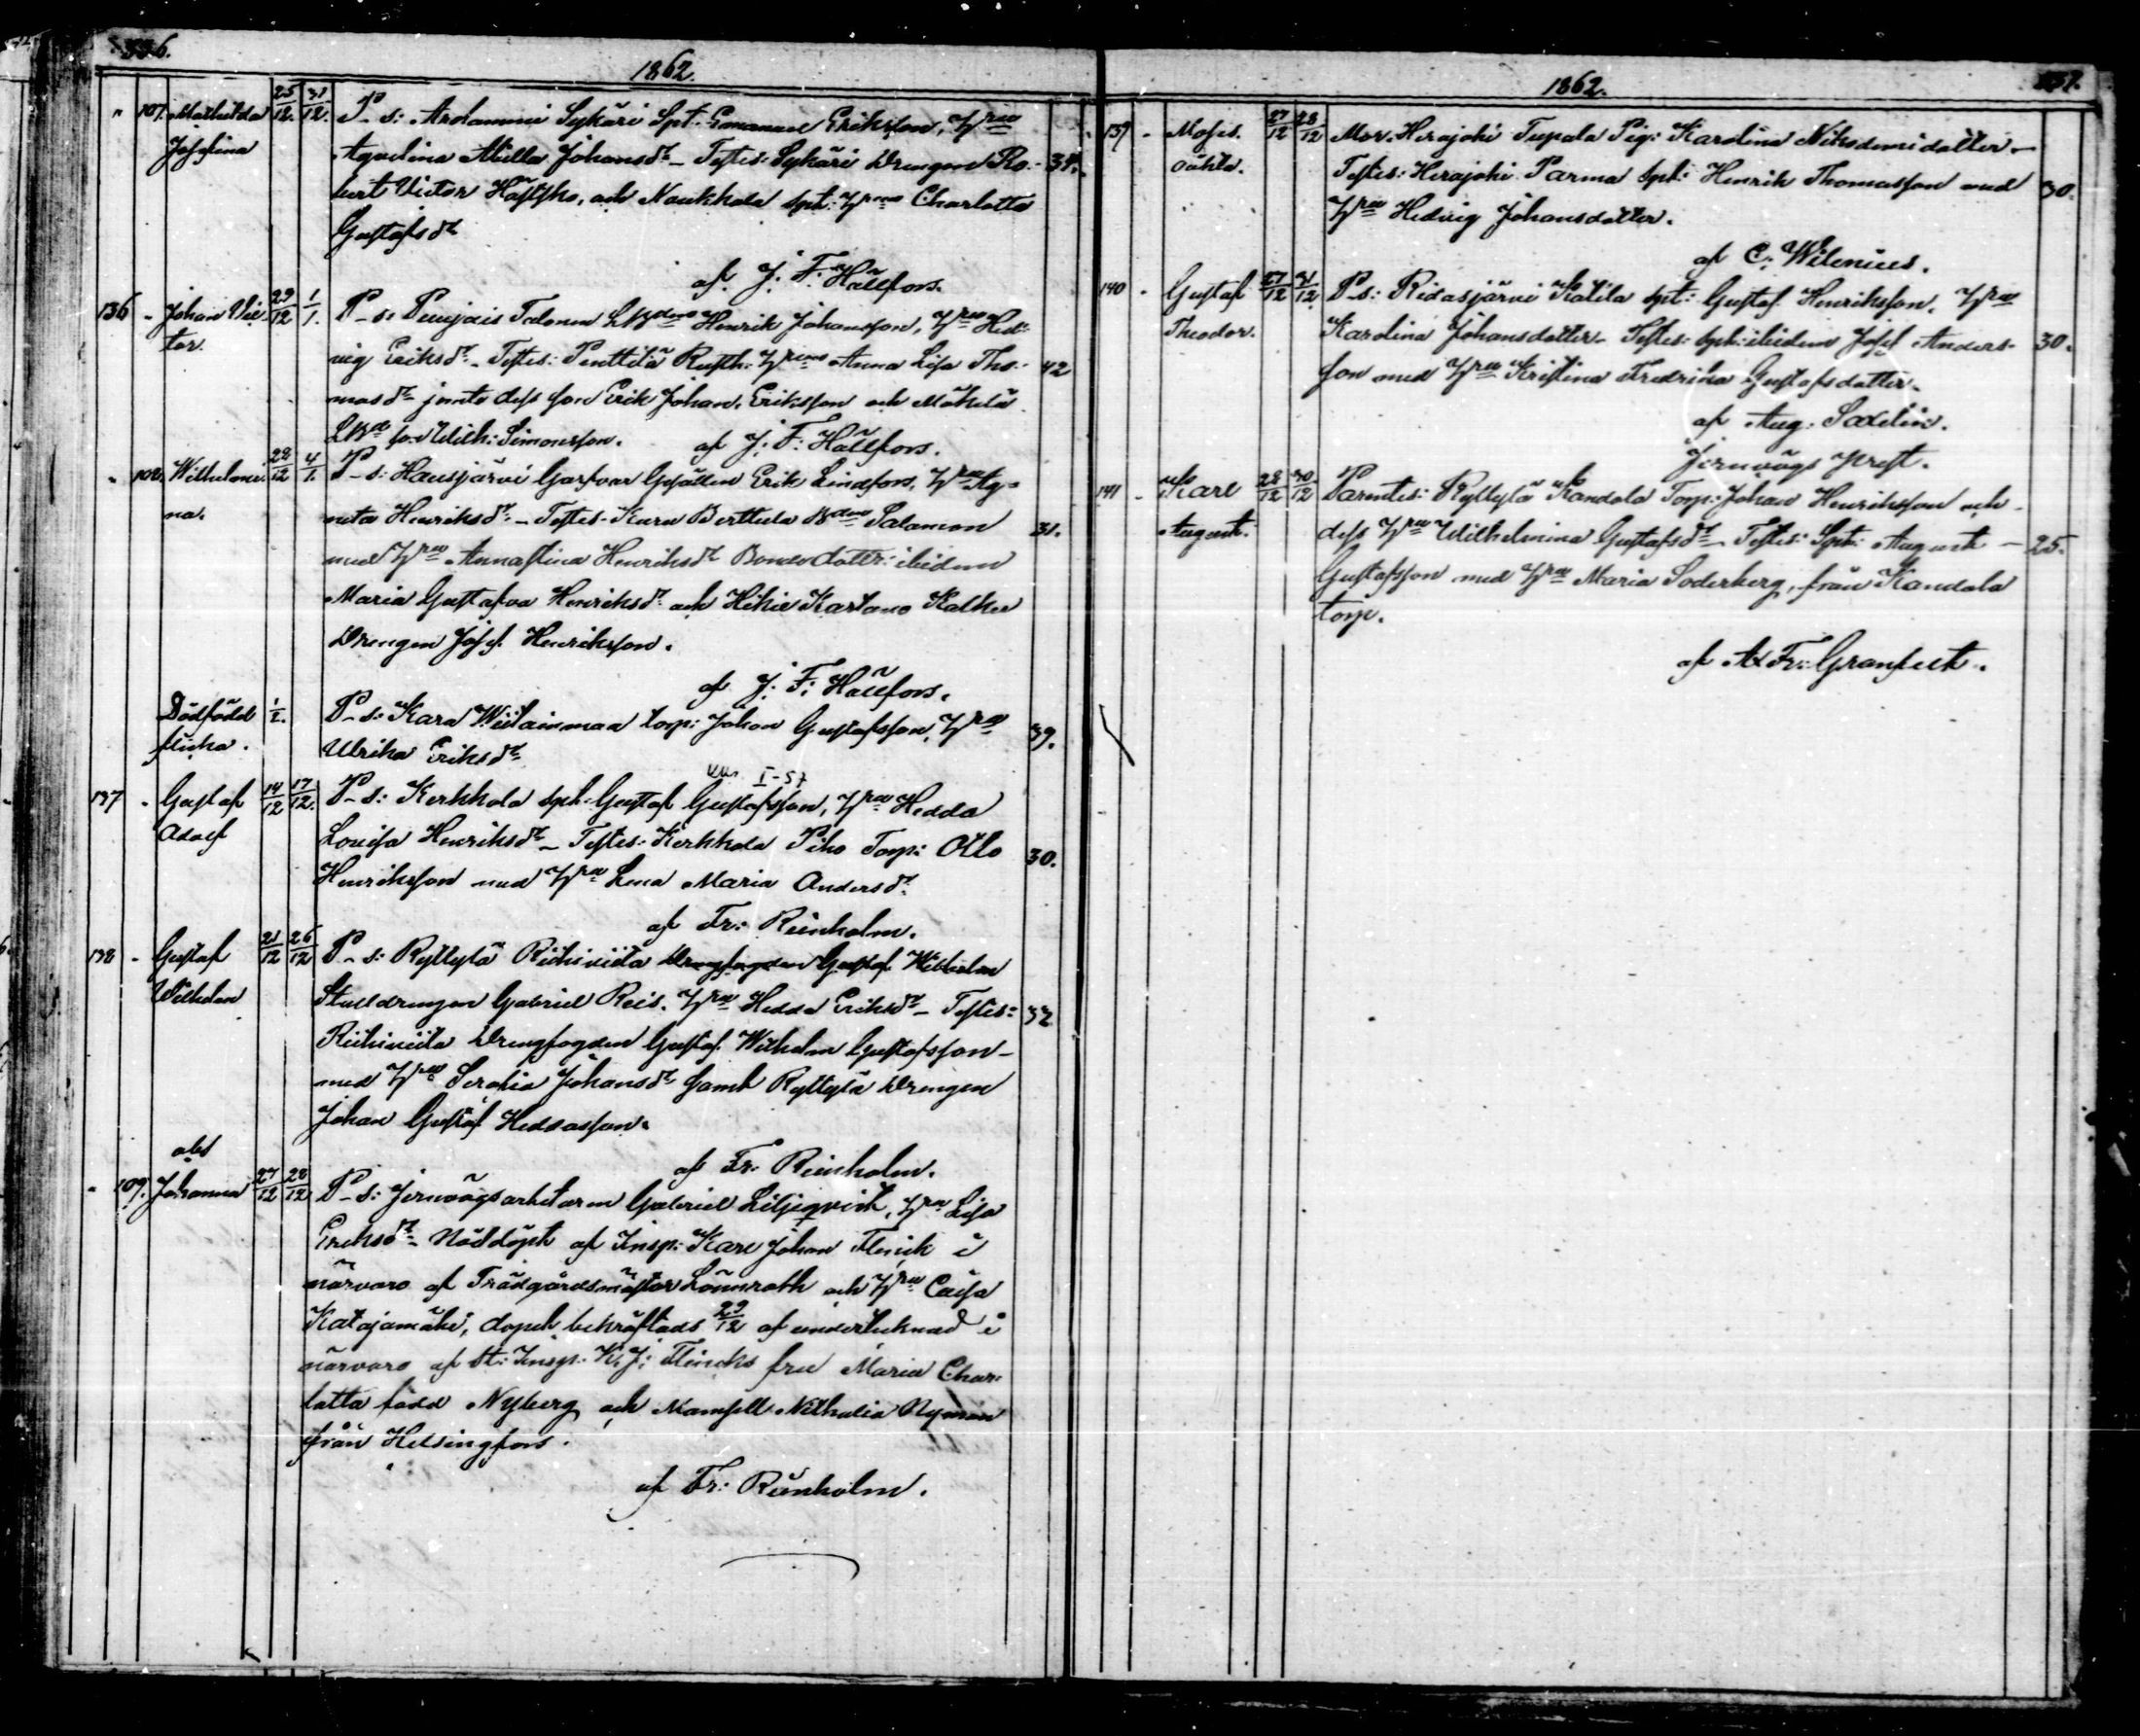 336.
1862.
" 107. Mathilda 25/12. 31/12. P-s: Arolammi Sykäri Spt: Emanuel Eriksson, Hru
Josefina Agvelina Ulla Johansdr – Testes: Sykäri Drengen Ro- 34.
bert Victor Hästsko, och Naukkala Spt: Hru Charlotta
Gustafsdr
af J. F. Hällfors.
136 - Johan Vic- 29/12 1/1. P-s: Penijais Talonen Henrik Johansson, Hru Hed-
tor. vig Eriksdr – Testes: Penttilä Rusth: Hru Anna Lisa Tho- 42
masdr jemte dess son Erik Johan Eriksson och Mäkelä
son Wilh: Simonsson. af J: F: Hällfors.
" 108. Wilhelmi- 28/12 4/1. P-s: Hausjärvi Garfvar Gesällen Erik Lindfors, Hru Ag-
na. neta Henriksdr – Testes: Kuru Berttula Salamon 31.
med Hru Annastina Henriksdr Bondedottr: ibidem
Maria Gustafva Henriksdr och Hikiä Kartano
Drengen Josef Henriksson.
af J: F: Hällfors.
Dödfödd 1/2. P-s: Kara Wiitainmaa torp: Johan Gustafsson, Hru 39.
flicka. Ulrika Eriksdr
I-57
137 - Gustaf 14/12 17/12. P-s: Kerkkola Spt: Gustaf Gustafsson, Hru Hedda
Adolf Lovisa Henriksdr – Testes: Kerkkola Piho Torp: Otto 30.
Henriksson med Hru Lena Maria Andersdr
af Fr: Reinholm.
138 - Gustaf 21/12 26/12 P-s: Ryttylä Riihiviita Drengfogden Gustaf Wilhelm
Wilhelm Stalldrengen Gabriel Reis. Hru Hedda Eriksdr – Testes: 32
Riihiviita Drengfogden Gustaf Wilhelm Gustafsson –
med Hru Serafia Johansdr samt Ryttylä Drengen
Johan Gustaf Heddasson.
af Fr: Reinholm.
" 109. Johanna 27/12 28/12 P-s: Jernvägsarbetaren Gabriel Liljeqvist, Hru Lisa
Eriksdr – Nöddöpt af Insp: Karl Johan Flinck i
närvaro af Trädgårdsmästar Lönnroth och Hru Caisa
Katajamäki, dopet bekräftads 29/12 af undertecknad i
närvaro af St: Insp: K. J: Flincks fru Maria Char-
lotta född Nyberg och Mamsell Nathalia Nyman
från Helsingfors.
af Fr: Reinholm.
1862.
337.
139 - Moses. 27/12 28/12 Mor. Herajoki Tupala Pig: Karolina Nikodemidotter –
oäkta. Testes: Herajoki Parma Spt: Henrik Thomasson med 30.
Hru Hedvig Johansdotter.
af C: Wilenius.
140 - Gustaf 27/12 31/12 P-s: Ridasjärvi Katila Spt: Gustaf Henriksson, Hru
Theodor. Karolina Johansdotter – Testes: Spt: ibidem Josef Anders- 30.
son med Hru Kristina Fredrika Gustafsdotter.
af Aug. Saxelin.
Jernvägs prest.
141 - Karl 28/12 30/12 Parentes: Ryttylä Kandola Torp: Johan Henriksson och
August. dess Hru Wilhelmina Gustafsdr – Testes: Spt: August – 25.
Gustafsson med Hru Maria Söderberg, från Kandola
torp.
af A Fr: Granfelt.